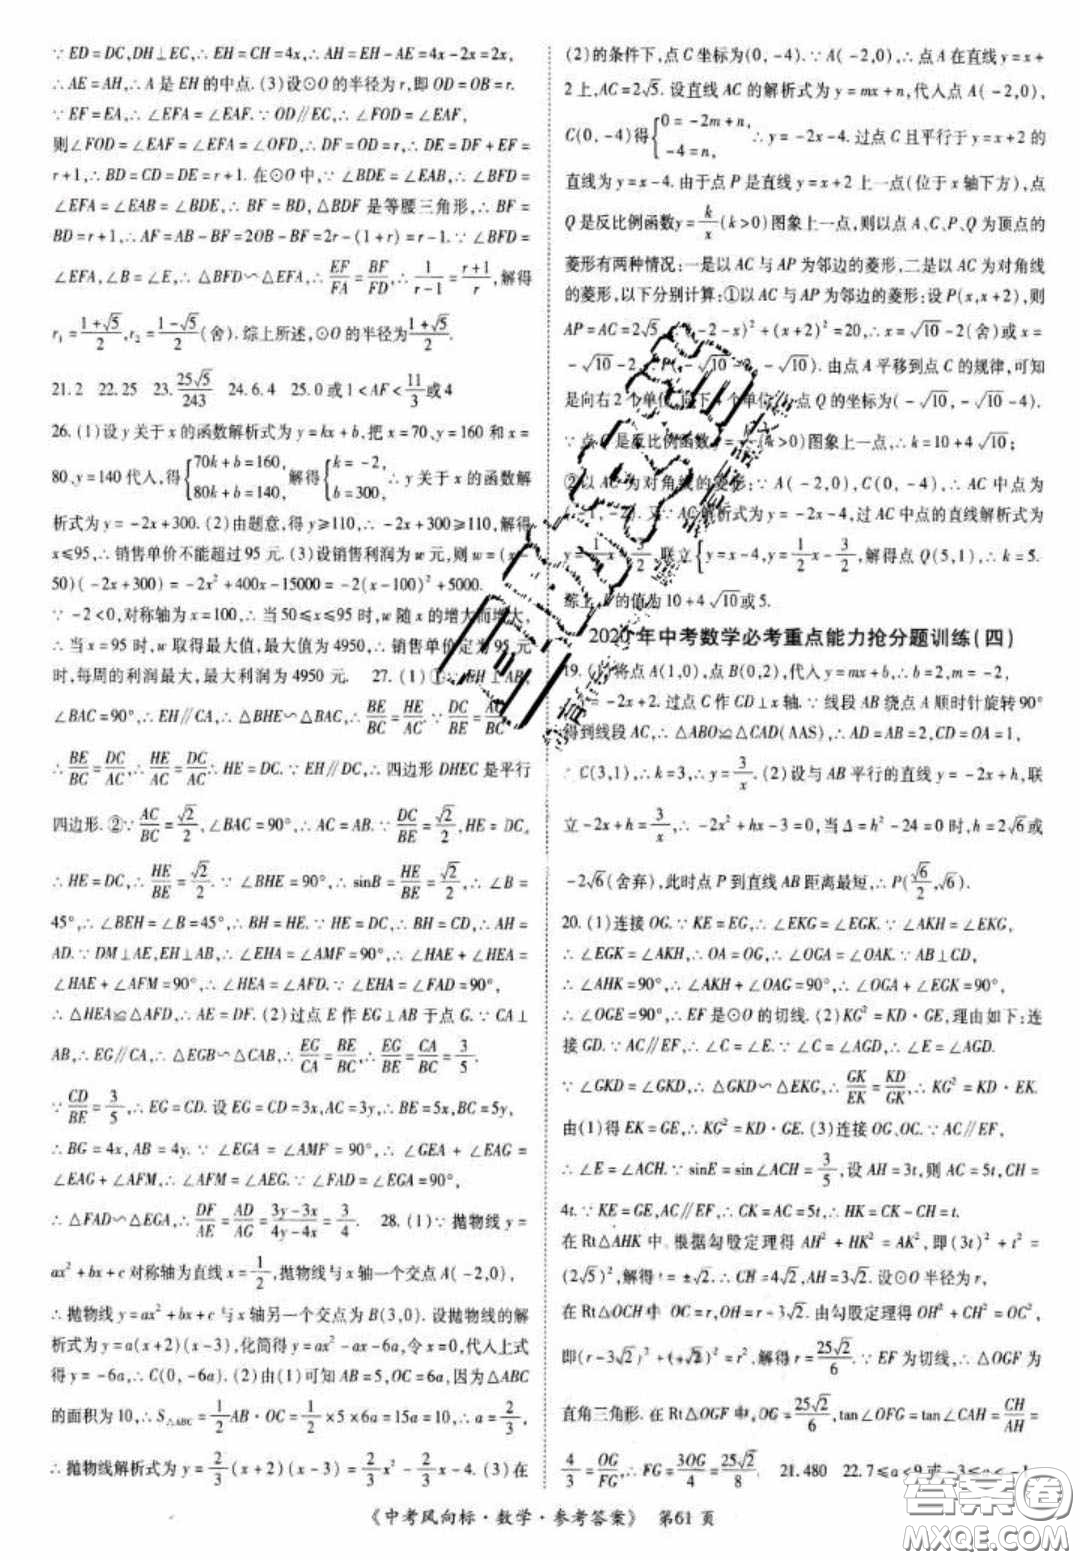 ∵ED=DC,DH⊥EC,∴EH=CH=4x,∴AH=EH-AE=4x-2x=2x,
∴AE=AH,∴A是EH的中点.(3)设⊙O的半径为r,即OD=OB=r.
∵EF=EA,∴∠EFA=∠EAF.∵OD∥EC,∴∠FOD=∠EAF,
则∠FOD=∠EAF=∠EFA=∠OFD,∴DF=OD=r,∴DE=DF+EF=
r+1,∴BD=CD=DE=r+1.在⊙O中,∵∠BDE=∠EAB,∴∠BFD=
∠EFA=∠EAB=∠BDE,∴BF=BD,△BDF是等腰三角形,∴BF=
BD=r+1,∴AF=AB-BF=2OB-BF=2r-(1+r)=r-1.∵∠BFD=
∠EFA,∠B=∠E,∴△BFD∽△EFA,∴EF/FA=BF/FD,∴1/(r-1)=(r+1)/r,解得
r₁=(1+√5)/2,r₂=(1-√5)/2(舍).综上所述,⊙O的半径为(1+√5)/2.
21.2 22.25 23.25√5/243 24.6.4 25.0或1<AF<11/3或4
26.(1)设y关于x的函数解析式为y=kx+b,把x=70、y=160和x=
80、y=140代入,得{70k+b=160, 80k+b=140,解得{k=-2, b=300.∴y关于x的函数解
析式为y=-2x+300.(2)由题意,得y≥110,∴-2x+300≥110,解得
x≤95,∴销售单价不能超过95元.(3)设销售利润为w元,则w=(x-
50)(-2x+300)=-2x²+400x-15000=-2(x-100)²+5000.
∵-2<0,对称轴为x=100,∴当50≤x≤95时,w随x的增大而增大,
∴当x=95时,w取得最大值,最大值为4950,∴销售单价定为95元
时,每周的利润最大,最大利润为4950元. 27.(1)①∵EH⊥AB,
∠BAC=90°,∴EH∥CA,∴△BHE∽△BAC,∴BE/BC=HE/AC.∵DC/BE=AC/BC,
∴BE/BC=DC/AC,∴HE/AC=DC/AC,∴HE=DC.∵EH∥DC,∴四边形DHEC是平行
四边形.②∵AC/BC=√2/2,∠BAC=90°,∴AC=AB.∵DC/BE=√2/2,HE=DC,
∴HE=DC,∴HE/BE=√2/2.∵∠BHE=90°,∴sinB=HE/BE=√2/2,∴∠B=
45°,∴∠BEH=∠B=45°,∴BH=HE.∵HE=DC,∴BH=CD,∴AH=
AD.∵DM⊥AE,EH⊥AB,∴∠EHA=∠AMF=90°,∴∠HAE+∠HEA=
∠HAE+∠AFM=90°,∴∠HEA=∠AFD.∵∠EHA=∠FAD=90°,
∴△HEA≌△AFD,∴AE=DF.(2)过点E作EG⊥AB于点G.∵CA⊥
AB,∴EG∥CA,∴△EGB∽△CAB,∴EG/CA=BE/BC,∴EG/BE=CA/BC=3/5.
∵CD/BE=3/5,∴EG=CD.设EG=CD=3x,AC=3y,∴BE=5x,BC=5y,
∴BG=4x,AB=4y.∵∠EGA=∠AMF=90°,∴∠GEA+∠EAG=
∠EAG+∠AFM,∴∠AFM=∠AEG.∵∠FAD=∠EGA=90°,
∴△FAD∽△EGA,∴DF/AE=AD/AG=(3y-3x)/(4y-4x)=3/4. 28.(1)∵抛物线y=
ax²+bx+c对称轴为直线x=1/2,抛物线与x轴一个交点A(-2,0),
∴抛物线y=ax²+bx+c与x轴另一个交点为B(3,0).设抛物线的解
析式为y=a(x+2)(x-3),化简得y=ax²-ax-6a,令x=0,代入上式
得y=-6a,∴C(0,-6a).(2)由(1)可知AB=5,OC=6a,因为△ABC
的面积为10,∴S△ABC=1/2AB·OC=1/2×5×6a=15a=10,∴a=2/3,
∴抛物线解析式为y=2/3(x+2)(x-3)=2/3x²-2/3x-4.(3)在
(2)的条件下,点C坐标为(0,-4).∵A(-2,0),∴点A在直线y=x+
2上,AC=2√5.设直线AC的解析式为y=mx+n,代入点A(-2,0),
C(0,-4)得{0=-2m+n, -4=n,∴y=-2x-4.过点C且平行于y=x+2的
直线为y=x-4.由于点P是直线y=x+2上一点(位于x轴下方),点
Q是反比例函数y=k/x(k>0)图象上一点,则以点A、C、P、Q为顶点的
菱形有两种情况:一是以AC与AP为邻边的菱形,二是以AC为对角线
的菱形,以下分别计算:①以AC与AP为邻边的菱形:设P(x,x+2),则
AP=AC=2√5,∴(-2-x)²+(x+2)²=20,∴x=√10-2(舍)或x=
-√10-2,∴P(-√10-2,-√10).由点A平移到点C的规律,可知
是向右2个单位,向下4个单位,∴点Q的坐标为(-√10,-√10-4).
∵点Q是反比例函数y=k/x(k>0)图象上一点,∴k=10+4√10;
②以AC为对角线的菱形:∵A(-2,0),C(0,-4),∴AC中点为
(-1,-2).又∵AC解析式为y=-2x-4,过AC中点的直线解析式为
y=1/2x-3/2.联立{y=x-4,y=1/2x-3/2,解得点Q(5,1),∴k=5.
综上,k的值为10+4√10或5.
2020年中考数学必考重点能力抢分题训练(四)
19.(1)将点A(1,0),点B(0,2),代入y=mx+b,∴b=2,m=-2,
=-2x+2.过点C作CD⊥x轴.∵线段AB绕点A顺时针旋转90°
得到线段AC,∴△ABO≌△CAD(AAS),∴AD=AB=2,CD=OA=1,
∴C(3,1),∴k=3,∴y=3/x.(2)设与AB平行的直线y=-2x+h,联
立-2x+h=3/x,∴-2x²+hx-3=0,当Δ=h²-24=0时,h=2√6或
-2√6(舍弃),此时点P到直线AB距离最短,∴P(√6/2,√6).
20.(1)连接OG.∵KE=EG,∴∠EKG=∠EGK.∵∠AKH=∠EKG,
∴∠EGK=∠AKH,∴OA=OG,∴∠OGA=∠OAK.∵AB⊥CD,
∴∠AHK=90°,∴∠AKH+∠OAG=90°,∴∠OGA+∠EGK=90°,
∴∠OGE=90°,∴EF是⊙O的切线.(2)KG²=KD·GE,理由如下:连
接GD.∵AC∥EF,∴∠C=∠E.∵∠C=∠AGD,∴∠E=∠AGD.
∵∠GKD=∠GKD,∴△GKD∽△EKG,∴GK/EK=KD/GK,∴KG²=KD·EK.
由(1)得EK=GE,∴KG²=KD·GE.(3)连接OG,OC.∵AC∥EF,
∴∠E=∠ACH.∵sinE=sin∠ACH=3/5,设AH=3t,则AC=5t,CH=
4t.∵KE=GE,AC∥EF,∴CK=AC=5t,∴HK=CK-CH=t.
在Rt△AHK中,根据勾股定理得AH²+HK²=AK²,即(3t)²+t²=
(2√5)²,解得t=±√2.∴CH=4√2,AH=3√2.设⊙O半径为r,
在Rt△OCH中,OC=r,OH=r-3√2.由勾股定理得OH²+CH²=OC²,
即(r-3√2)²+(4√2)²=r²,解得r=25√2/6.∵EF为切线,∴△OGF为
直角三角形.在Rt△OGF中,OG=25√2/6,tan∠OFG=tan∠CAH=CH/AH=
4/3=OG/FG,∴FG=3OG/4=25√2/8. 21.480 22.7≤a<9或-3≤a<-1
《中考风向标·数学·参考答案》 第61页
答案圈
MXQE.COM